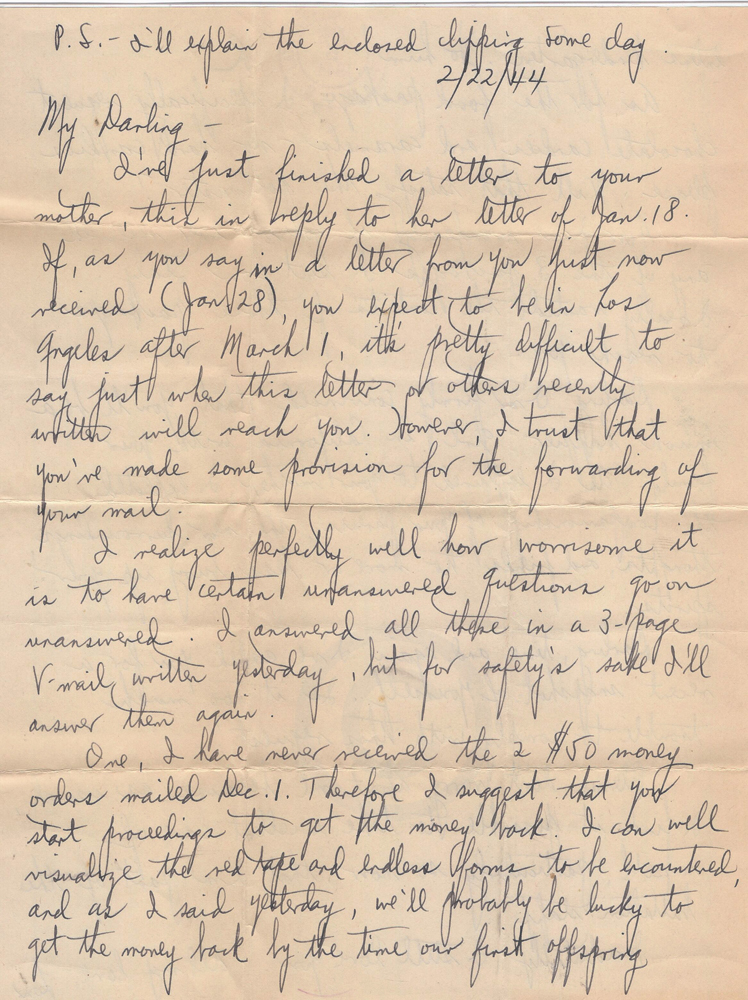 P.S. - I'll explain the enclosed clipping some day.
2/22/44
My Darling -
I've just finished a letter to your
mother, this in reply to her letter of Jan. 18.
If, as you say in a letter from you just now
received (Jan 28), you expect to be in Los
Angeles after March 1, it's pretty difficult to
say just when this letter or others recently
written will reach you. However, I trust that
you've made some provision for the forwarding of
your mail.
I realize perfectly well how worrisome it
is to have certain unanswered questions go on
unanswered. I answered all these in a 3-page
V-mail written yesterday, but for safety's sake I'll
answer them again.
One, I have never received the 2 $50 money
orders mailed Dec. 1. Therefore I suggest that you
start proceedings to get the money back. I can well
visualize the red tape and endless forms to be encountered,
and as I said yesterday, we'll probably be lucky to
get the money back by the time our first offspring